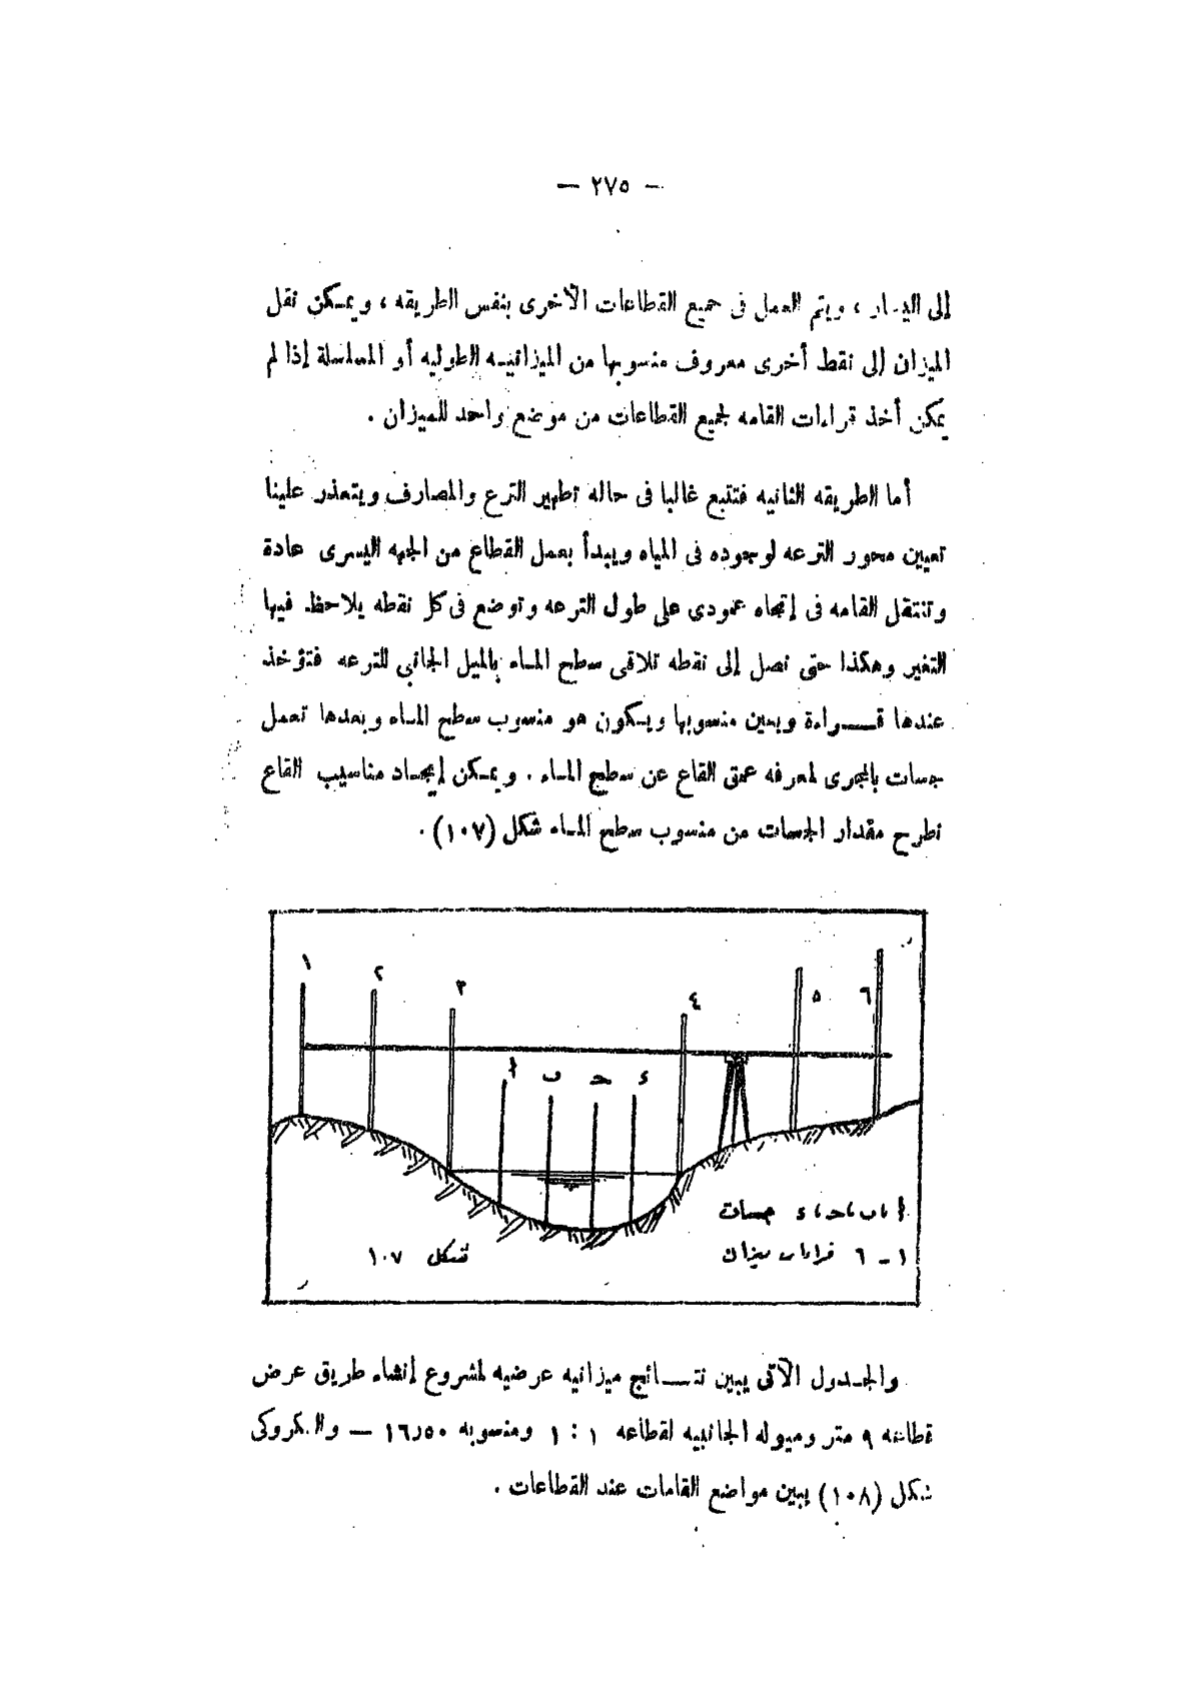 — ٢٧٥ —
إلى اليسار ، ويتم العمل فى جميع القطاعات الأخرى بنفس الطريقه ، ويمكن نقل
الميزان إلى نقط أخرى معروف منسوبها من الميزانيه الطوليه أو المسلسلة إذا لم
يمكن أخذ قراءات القامه لجميع القطاعات من موضع واحد للميزان .
أما الطريقه الثانيه فتتبع غالبا فى حاله تطهير الترع والمصارف ويتعذر علينا
تعيين محور الترعه لوجوده فى المياه ويبدأ بعمل القطاع من الجهه اليسرى عادة
وتنتقل القامه فى إتجاه عمودى على طول الترعه وتوضع فى كل نقطه يلاحظ فيها
التغير وهكذا حتى نصل إلى نقطه تلاقى سطح الماء بالميل الجانبى للترعه فتؤخذ
عندها قراءة ويعين منسوبها ويكون هو منسوب سطح الماء وبعدها تعمل
جسات بالمجرى لمعرفه عمق القاع عن سطح الماء . ويمكن إيجاد مناسيب القاع
بطرح مقدار الجسات من منسوب سطح الماء شكل (١٠٧) .
١ ٢ ٣ ٤ ٥ ٦
أ ب ح ء
أ ، ب ، ح ، ء جسات
١ - ٦ قراءات ميزان
شكل ١٠٧
والجدول الآتى يبين نتائج ميزانيه عرضيه لمشروع إنشاء طريق عرض
قطاعه ٩ متر وميوله الجانبيه لقطاعه ١ : ١ ومنسوبه ١٦٫٥٠ — والكروكى
شكل (١٠٨) يبين مواضع القامات عند القطاعات .